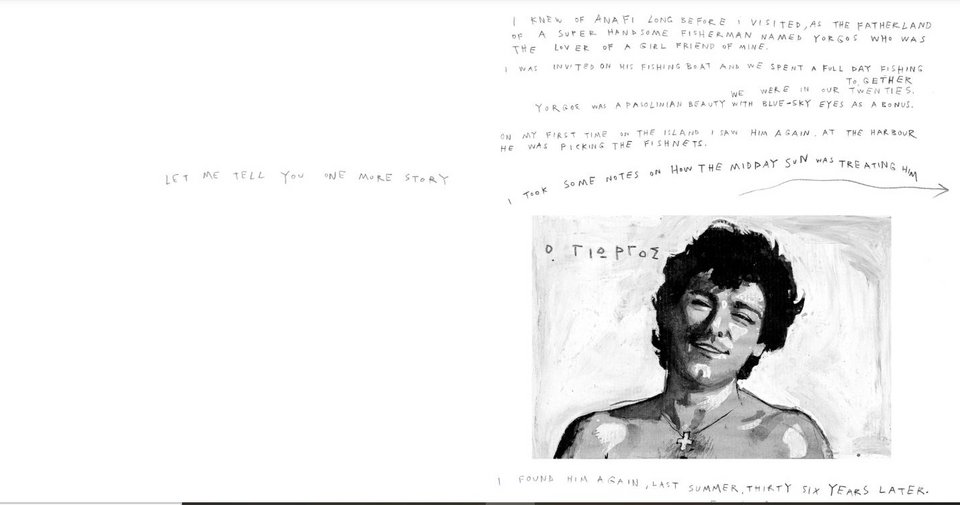 LET ME TELL YOU ONE MORE STORY
I KNEW OF ANAFI LONG BEFORE I VISITED, AS THE FATHERLAND
OF A SUPER HANDSOME FISHERMAN NAMED YORGOS WHO WAS
THE LOVER OF A GIRL FRIEND OF MINE.
I WAS INVITED ON HIS FISHING BOAT AND WE SPENT A FULL DAY FISHING
TOGETHER
WE WERE IN OUR TWENTIES.
YORGOS WAS A PASOLINIAN BEAUTY WITH BLUE-SKY EYES AS A BONUS.
ON MY FIRST TIME ON THE ISLAND I SAW HIM AGAIN. AT THE HARBOUR
HE WAS PICKING THE FISHNETS.
I TOOK SOME NOTES ON HOW THE MIDDAY SUN WAS TREATING HIM
Ο ΓΙΩΡΓΟΣ
I FOUND HIM AGAIN, LAST SUMMER, THIRTY SIX YEARS LATER.